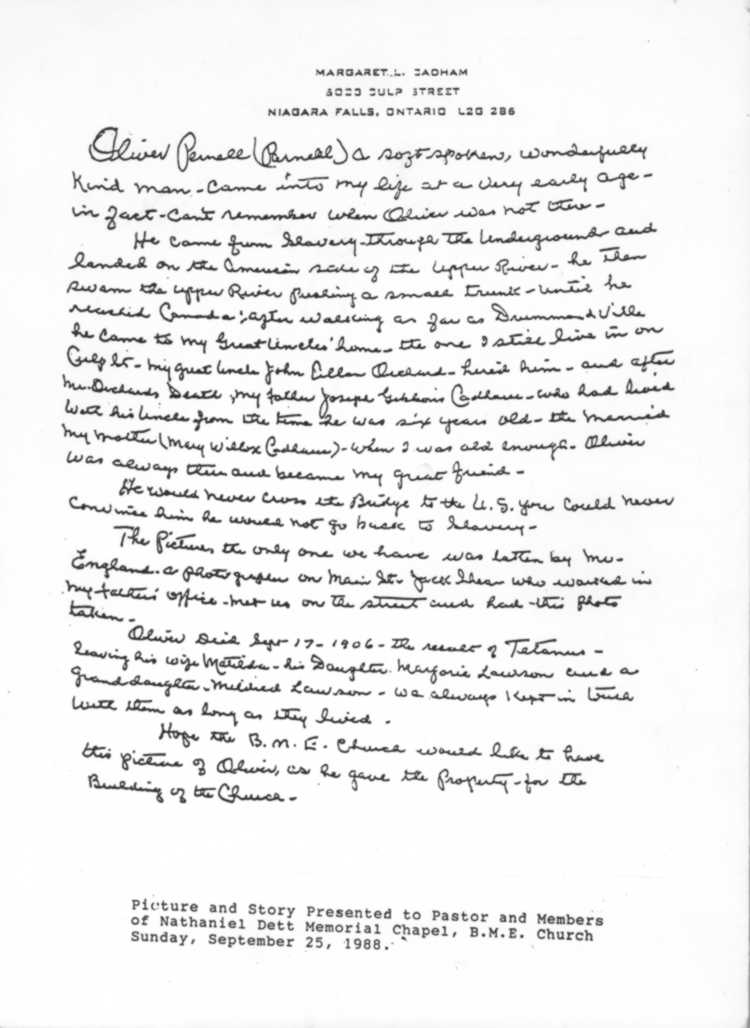 MARGARET L. CADHAM
CULP STREET
NIAGARA FALLS, ONTARIO L2G 2B6
Oliver Pernell (Parnell) a soft spoken, wonderfully
Kind man - Came into my life at a very early age -
in fact - Can't remember when Oliver was not there -
He came from Slavery - through the Underground and
landed on the American side of the Upper River - he then
swam the upper River pushing a small trunk - until he
reached Canada; after walking as far as Drummondville
he came to my Great Uncles' home - the one I still live in on
Culp St - my great Uncle John Ellan Orchard - hired him - and after
Mr. Orchards Death, my father Joseph Gibbons Cadham - who had lived
with his Uncle from the time he was six years old - the married
my mother (Mary Willox Cadham) - when I was old enough - Oliver
was always there and became my great friend -
He would never cross the Bridge to the U.S. you could never
convince him he would not go back to Slavery -
The Picture, the only one we have was taken by Mr.
England - a photographer on Main St. Jack Shear who worked in
my father's office - met us on the street and had this photo
taken -
Oliver Died Sept 17 - 1906 - the result of Tetanus -
leaving his wife Matilda - his Daughter Marjorie Lawson and a
Granddaughter - Mildred Lawson - we always kept in touch
with them as long as they lived.
Hope the B.M.E. Church would like to have
this picture of Oliver, as he gave the Property - for the
Building of the Church -
Picture and Story Presented to Pastor and Members
of Nathaniel Dett Memorial Chapel, B.M.E. Church
Sunday, September 25, 1988.